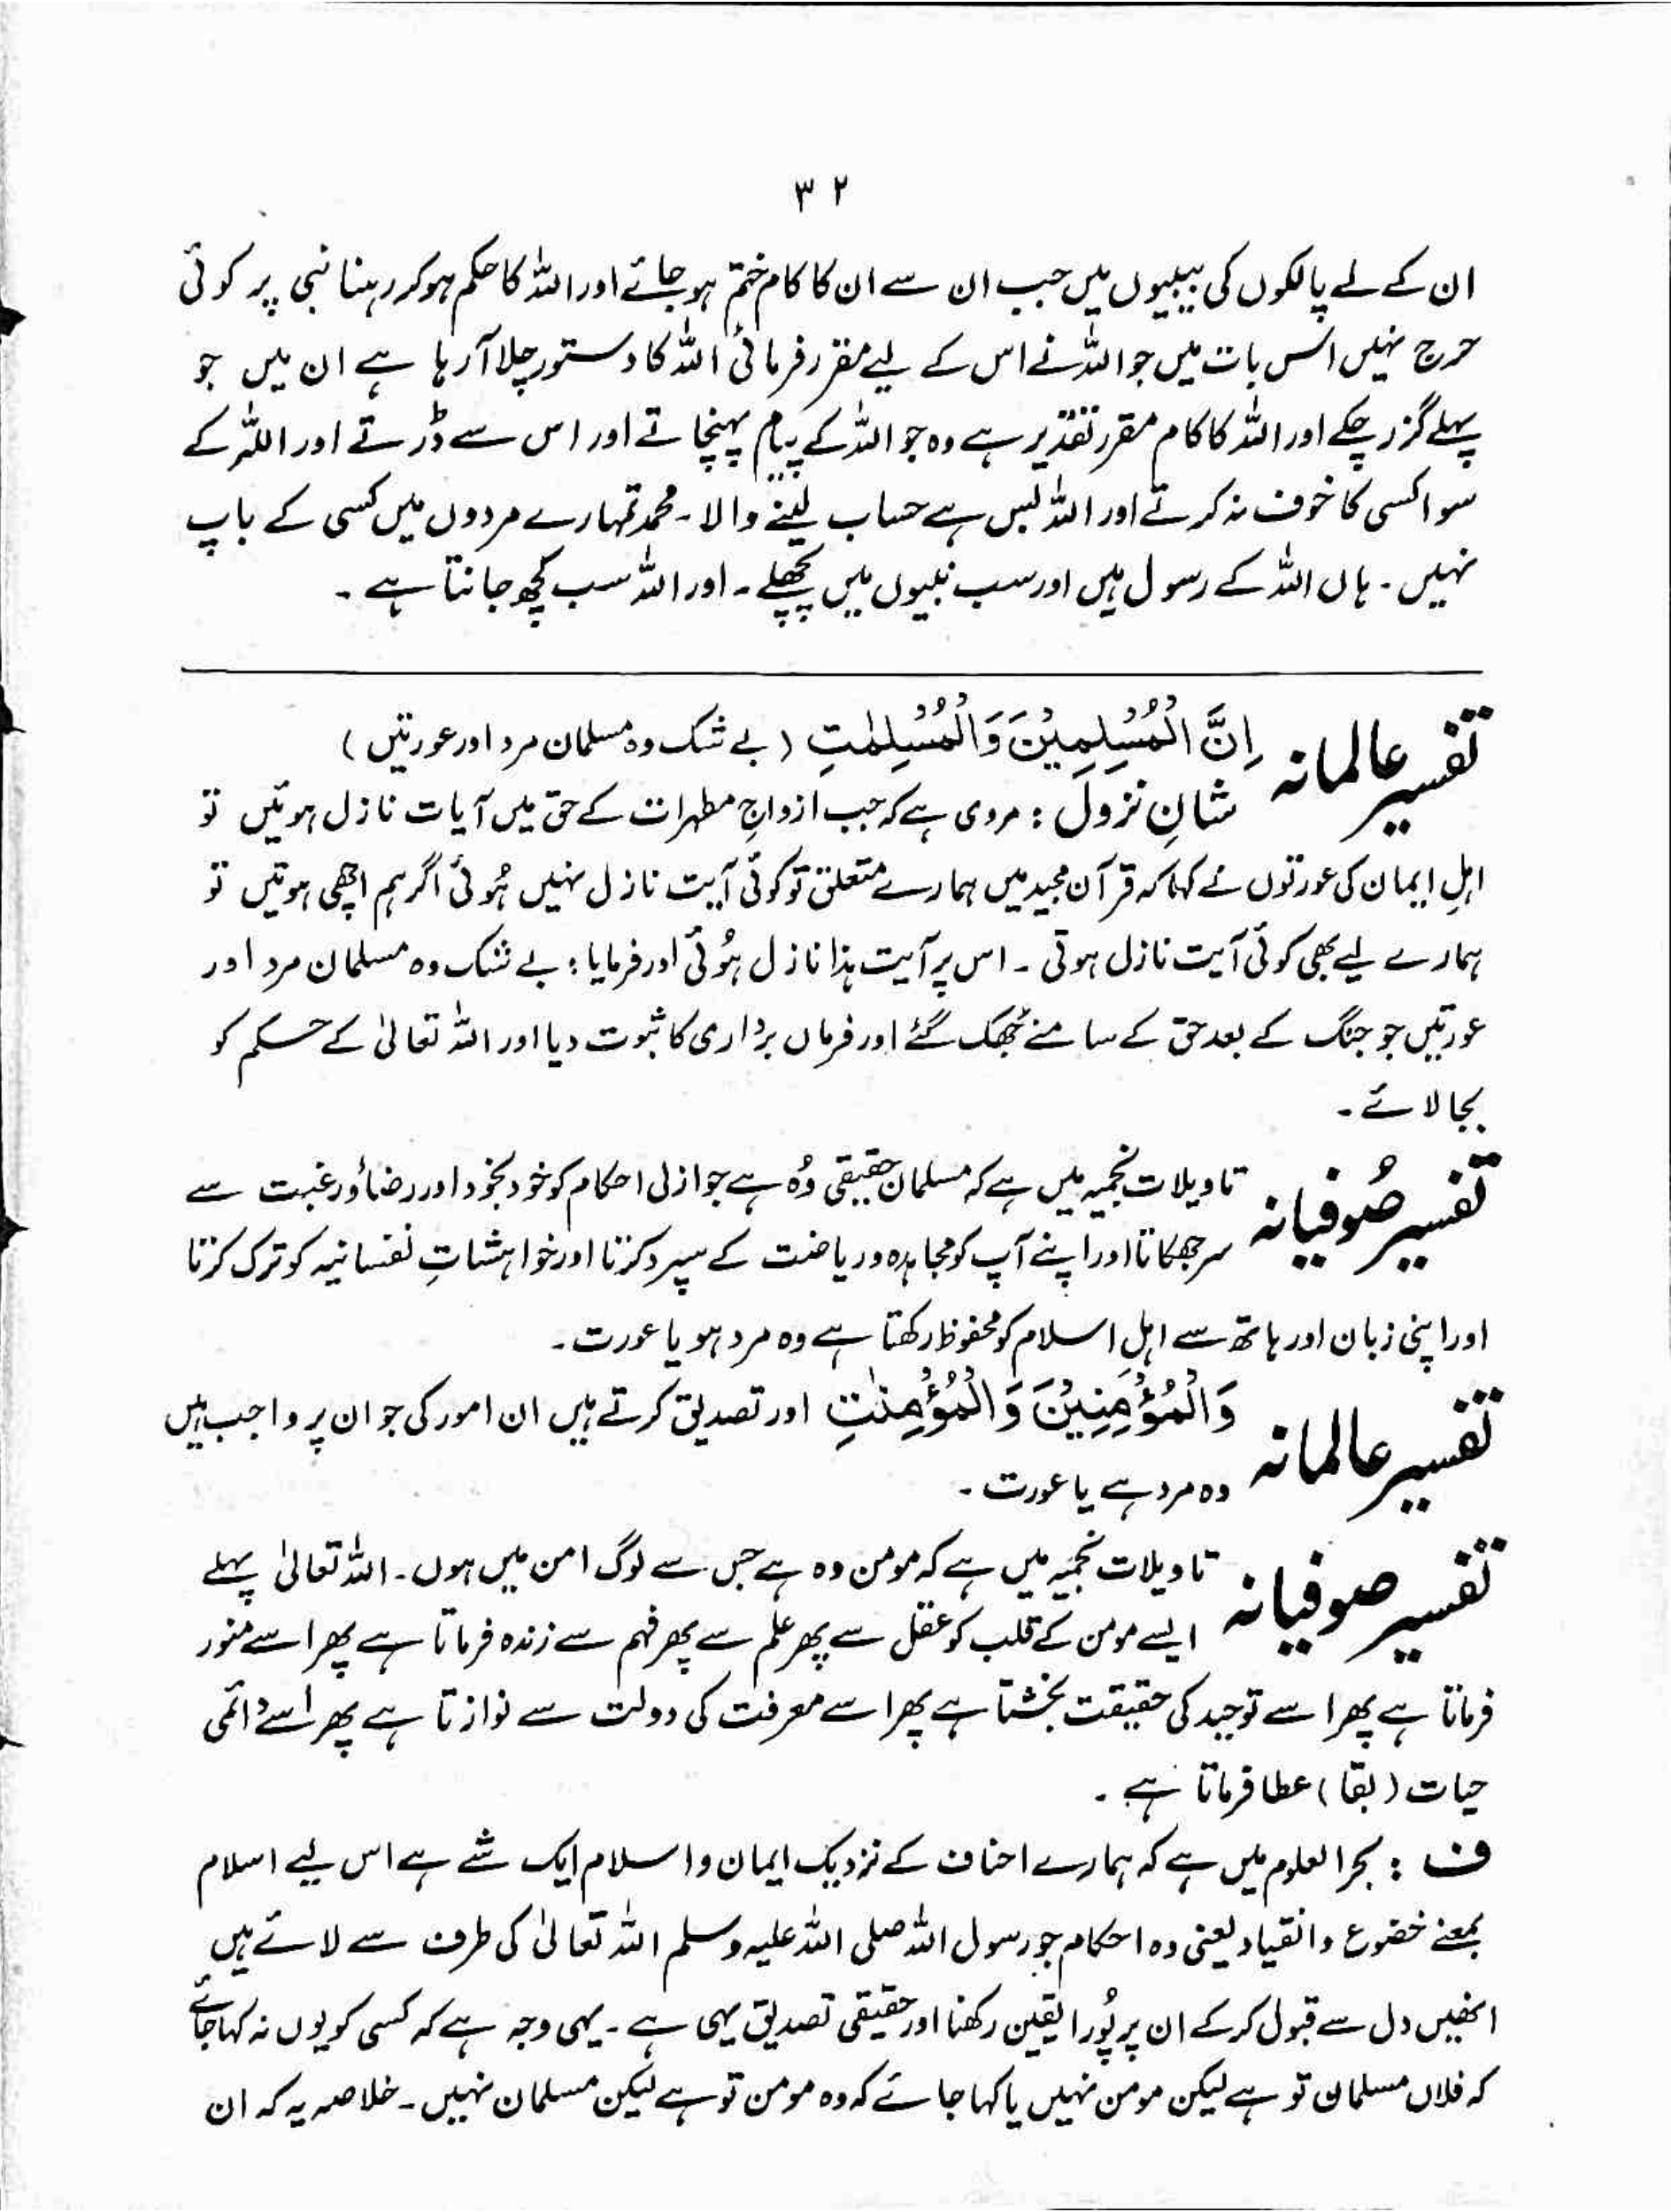 ۳۲
ان کے لے پالکوں کی بیبیوں میں جب ان سے ان کا کام ختم ہوجائے اور اللہ کا حکم ہوکر رہنا نبی پر کوئی
حرج نہیں اس بات میں جو اللہ نے اس کے لیے مقرر فرمائی اللہ کا دستور چلا آرہا ہے ان میں جو
پہلے گزر چکے اور اللہ کا کام مقرر تقدیر ہے وہ جو اللہ کے پیام پہنچاتے اور اس سے ڈرتے اور اللہ کے
سوا کسی کا خوف نہ کرتے اور اللہ بس ہے حساب لینے والا۔ محمد تمہارے مردوں میں کسی کے باپ
نہیں۔ ہاں اللہ کے رسول ہیں اور سب نبیوں میں پچھلے۔ اور اللہ سب کچھ جانتا ہے۔
تفسیر عالمانہ اِنَّ الْمُسْلِمِیْنَ وَالْمُسْلِمٰتِ (بے شک وہ مسلمان مرد اور عورتیں)
شانِ نزول : مروی ہے کہ جب ازواجِ مطہرات کے حق میں آیات نازل ہوئیں تو
اہلِ ایمان کی عورتوں نے کہا کہ قرآن مجید میں ہمارے متعلق تو کوئی آیت نازل نہیں ہُوئی اگر ہم اچھی ہوتیں تو
ہمارے لیے بھی کوئی آیت نازل ہوتی۔ اس پر آیت ہذا نازل ہُوئی اور فرمایا: بے شک وہ مسلمان مرد اور
عورتیں جو جنگ کے بعد حق کے سامنے جُھک گئے اور فرماں برداری کا ثبوت دیا اور اللہ تعالیٰ کے حسکم کو
بجا لائے۔
تفسیر صُوفیانہ تاویلات نجمیہ میں ہے کہ مسلمان حقیقی وُہ ہے جو ازلی احکام کو خود بخود اور رضاؤ رغبت سے
سر جھکاتا اور اپنے آپ کو مجاہدہ و ریاضت کے سپرد کرتا اور خواہشاتِ نفسانیہ کو ترک کرتا
اور اپنی زبان اور ہاتھ سے اہلِ اسلام کو محفوظ رکھتا ہے وہ مرد ہو یا عورت۔
تفسیر عالمانہ وَالْمُؤْمِنِیْنَ وَالْمُؤْمِنٰتِ اور تصدیق کرتے ہیں ان امور کی جو ان پر واجب ہیں
وہ مرد ہے یا عورت۔
تفسیر صوفیانہ تاویلات نجمیہ میں ہے کہ مومن وہ ہے جس سے لوگ امن میں ہوں۔ اللہ تعالیٰ پہلے
ایسے مومن کے قلب کو عقل سے پھر علم سے پھر فہم سے زندہ فرماتا ہے پھر اسے منور
فرماتا ہے پھر اسے توحید کی حقیقت بخشتا ہے پھر اسے معرفت کی دولت سے نوازتا ہے پھر اسے دائمی
حیات (بقا) عطا فرماتا ہے۔
ف : بحر العلوم میں ہے کہ ہمارے احناف کے نزدیک ایمان و اسلام ایک شے ہے اس لیے اسلام
بمعنے خضوع و انقیاد یعنی وہ احکام جو رسول اللہ صلی اللہ علیہ وسلم اللہ تعالیٰ کی طرف سے لائے ہیں
انھیں دل سے قبول کرکے ان پر پُورا یقین رکھنا اور حقیقی تصدیق یہی ہے۔ یہی وجہ ہے کہ کسی کو یوں نہ کہا جائے
کہ فلاں مسلمان تو ہے لیکن مومن نہیں یا کہا جائے کہ وہ مومن تو ہے لیکن مسلمان نہیں۔ خلاصہ یہ کہ ان